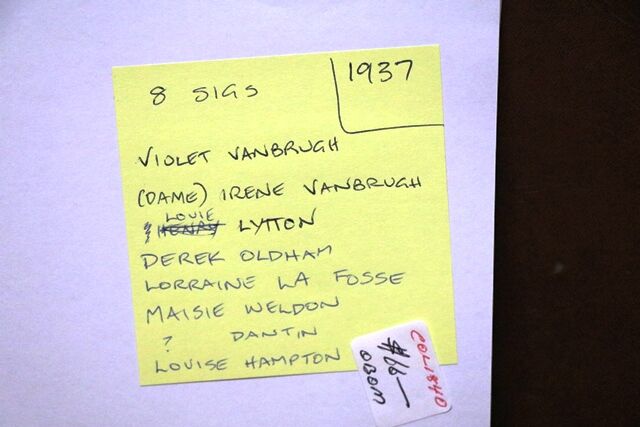 8 SIGS
1937
VIOLET VANBRUGH
(DAME) IRENE VANBRUGH
LOUIE
HENRY LYTTON
DEREK OLDHAM
LORRAINE LA FOSSE
MAISIE WELDON
? DANTIN
LOUISE HAMPTON
COL1840
$66—
OBOM